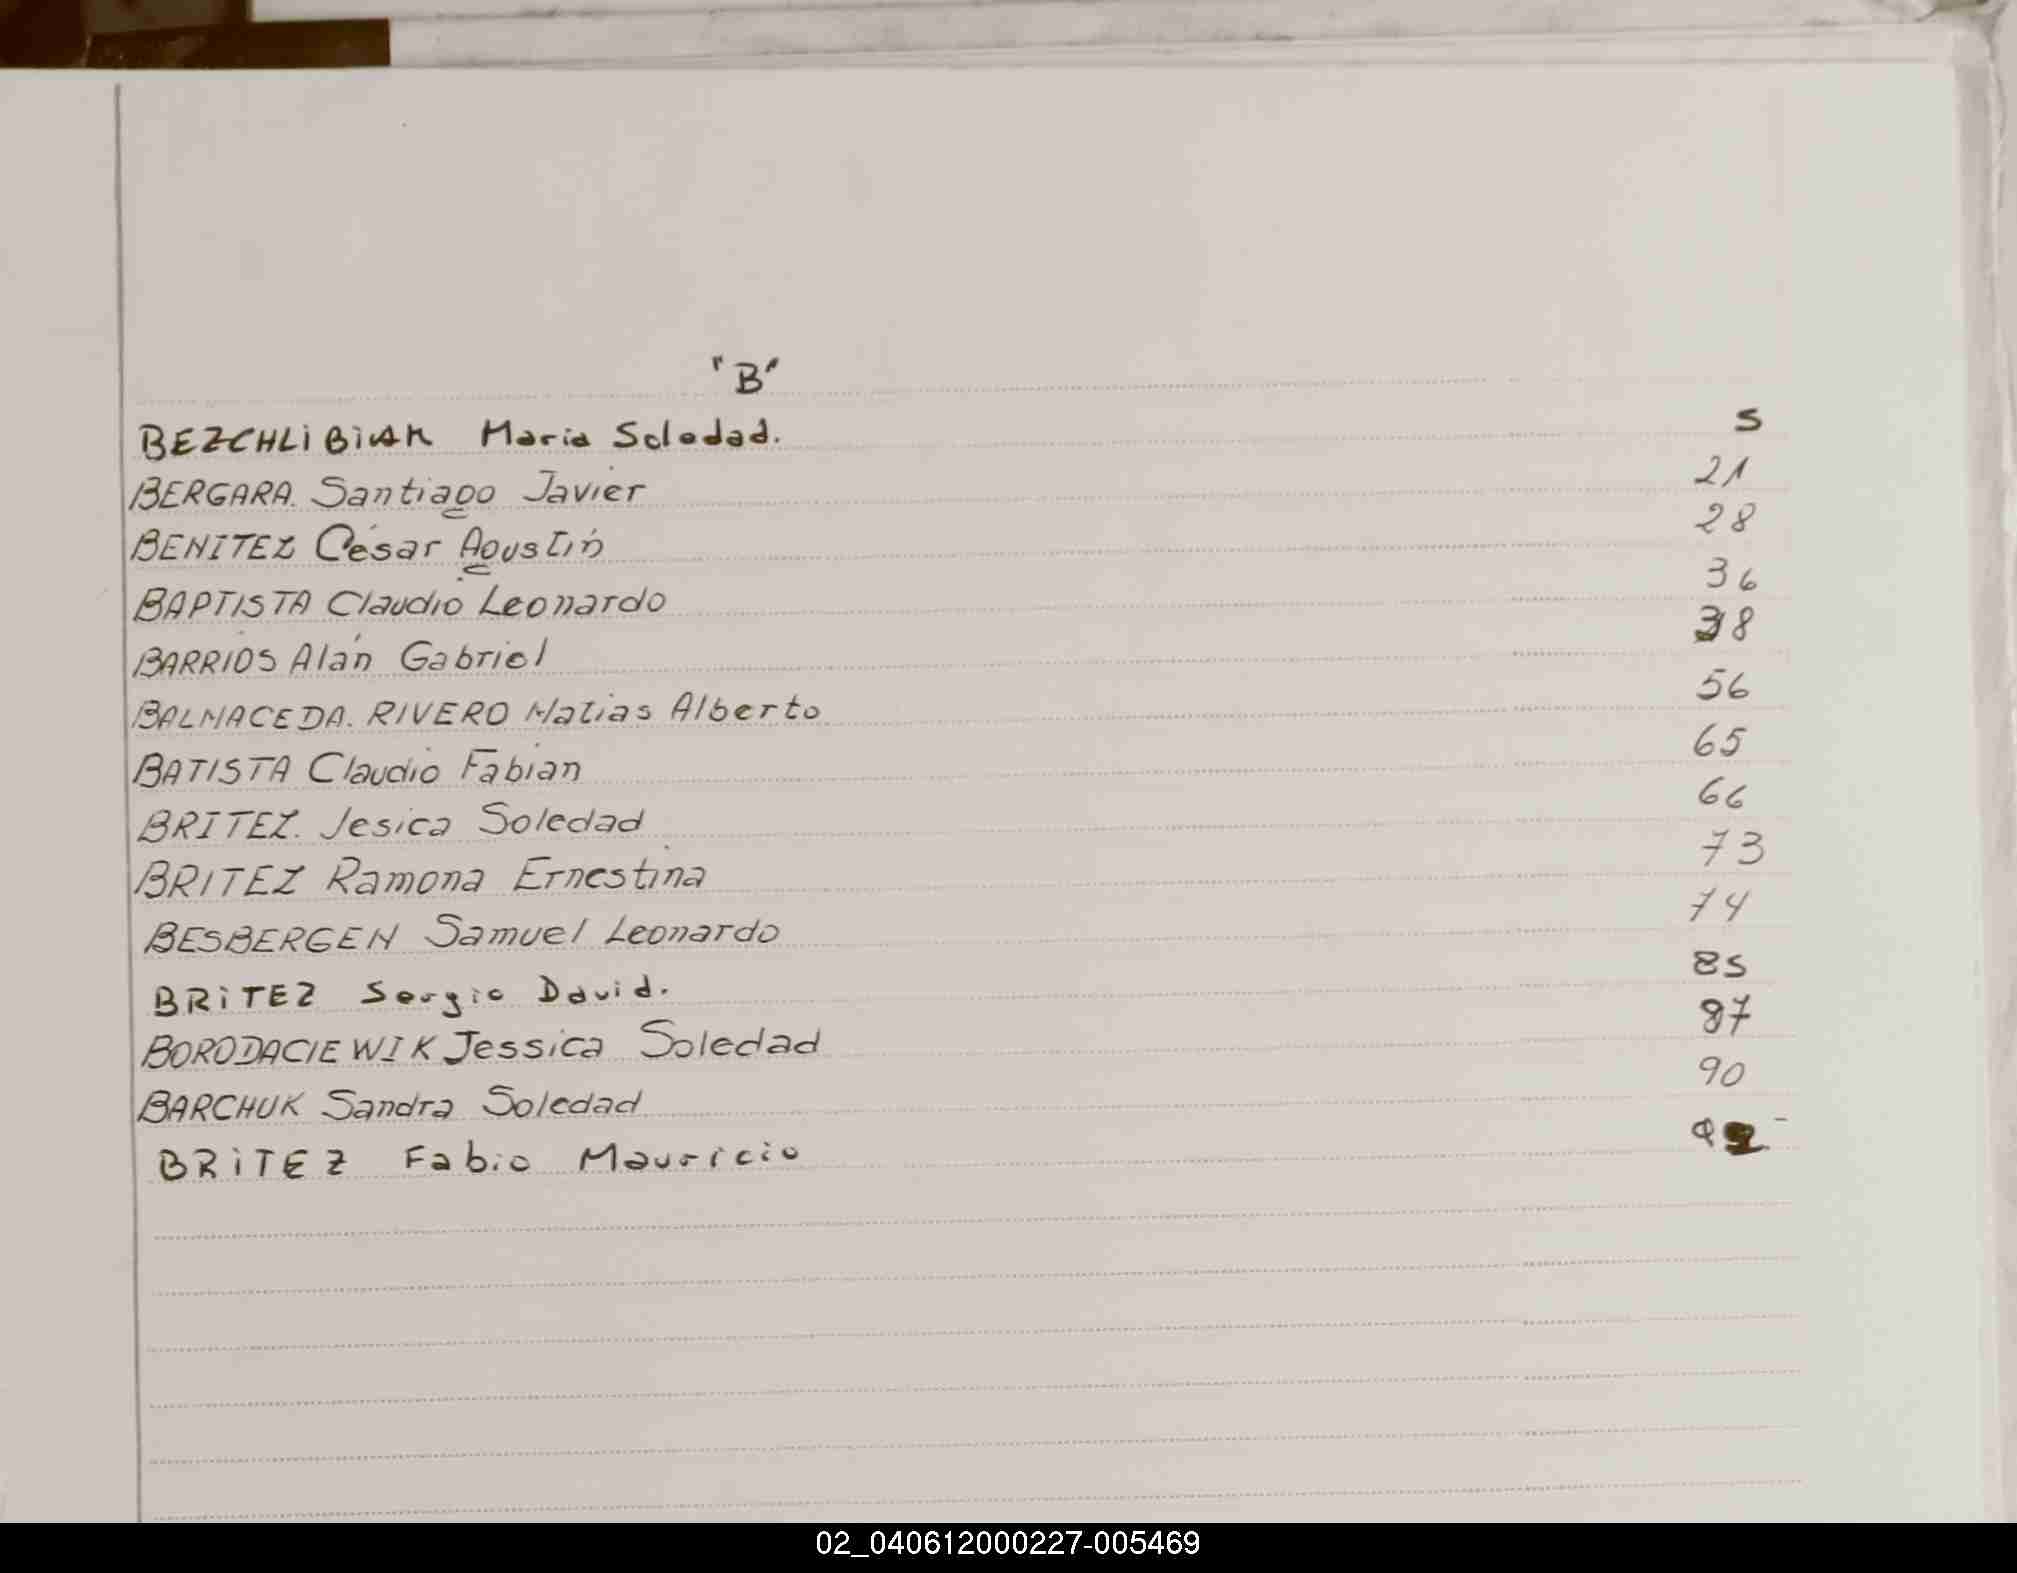 "B"
BEZCHLIBIAK Maria Soledad. 5
BERGARA. Santiago Javier 21
BENITEZ César Agustín 28
BAPTISTA Claudio Leonardo 36
BARRIOS Alán Gabriel 38
BALMACEDA. RIVERO Matias Alberto 56
BATISTA Claudio Fabian 65
BRITEZ. Jesica Soledad 66
BRITEZ Ramona Ernestina 73
BESBERGEN Samuel Leonardo 74
BRITEZ Sergio David. 85
BORODACIEWIK Jessica Soledad 87
BARCHUK Sandra Soledad 90
BRITEZ Fabio Mauricio
02_040612000227-005469